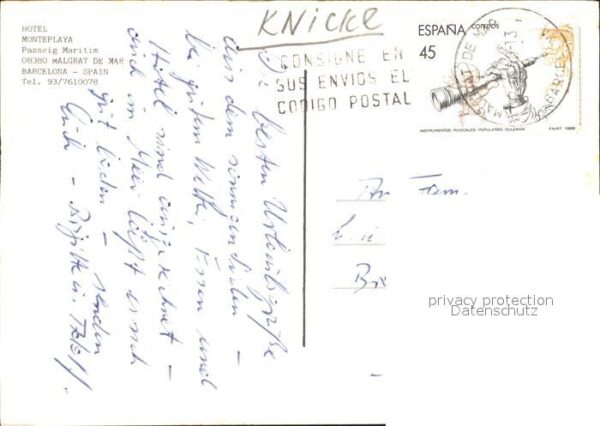 HOTEL
MONTEPLAYA
Passeig Maritim
08380 MALGRAT DE MAR
BARCELONA - SPAIN
Tel. 93/7610078
KNICKE
CONSIGNE EN
SUS ENVIOS EL
CODIGO POSTAL
ESPAÑA correos
45
INSTRUMENTOS MUSICALES POPULARES. DULZAINA F.N.M.T. 1986
MALGRAT DE MAR
BARCELONA
Die besten Urlaubsgrüße
aus dem sonnigen Süden –
bei gutem Wetter, Essen und
Hotel sind ausgezeichnet –
auch im Meer läßt es sich
gut baden – senden
Euch – Brigitte u.
An Fam.
privacy protection
Datenschutz